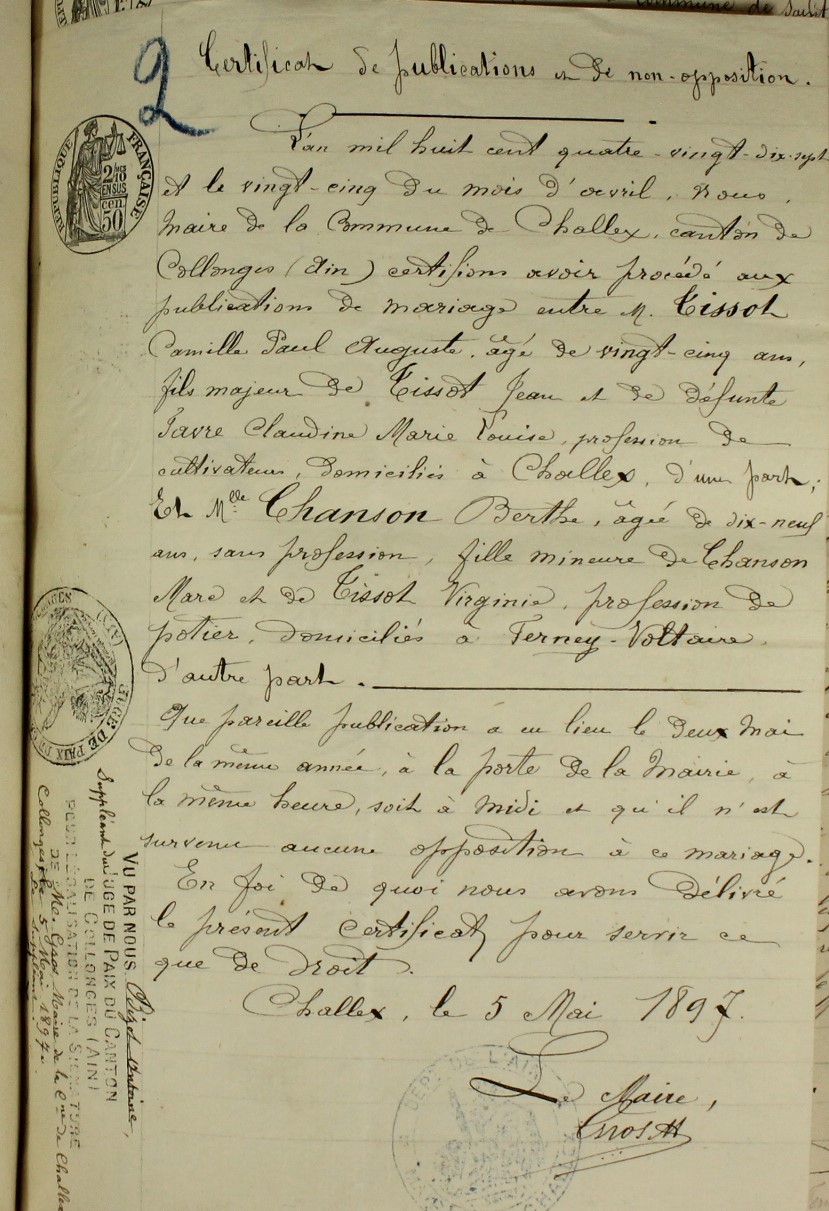 commune de Saint
2
Certificat de publications et de non-opposition.
L'an mil huit cent quatre-vingt-dix-sept
et le vingt-cinq du mois d'avril, nous,
Maire de la Commune de Challex, canton de
Collonges (Ain) certifions avoir procédé aux
publications de mariage entre M. Tissot
Camille Paul Auguste, âgé de vingt-cinq ans,
fils majeur de Tissot Jean et de défunte
Favre Claudine Marie Louise, profession de
cultivateurs, domiciliés à Challex, d'une part;
Et Mlle Chanson Berthe, âgée de dix-neuf
ans, sans profession, fille mineure de Chanson
Marc et de Tissot Virginie, profession de
potier, domiciliés à Ferney-Voltaire,
d'autre part.
Que pareille publication a eu lieu le deux Mai
de la même année, à la porte de la Mairie, à
la même heure, soit à midi et qu'il n'est
survenu aucune opposition à ce mariage.
En foi de quoi nous avons délivré
le présent certificat pour servir ce
que de droit.
Challex, le 5 Mai 1897.
Le Maire,
RÉPUBLIQUE FRANÇAISE
EN SUS
50
JUGE DE PAIX
(AIN)
VU PAR NOUS Antoine,
Suppléant du JUGE DE PAIX DU CANTON
DE COLLONGES (AIN)
POUR LÉGALISATION DE LA SIGNATURE
DE Mr Gros Maire de la Cne de Challex
Collonges le 5 Mai 1897.
Le Suppléant
DEPT DE L'AIN